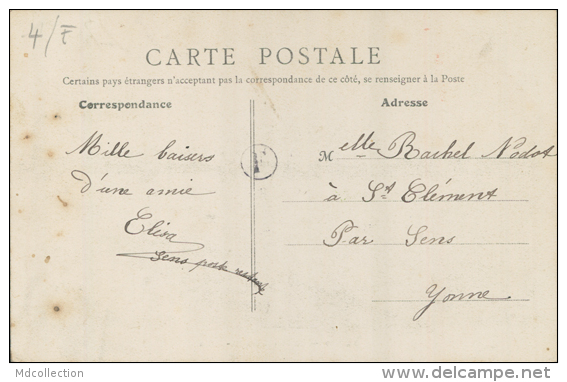 4/F
CARTE POSTALE
Certains pays étrangers n'acceptant pas la correspondance de ce côté, se renseigner à la Poste
Correspondance
Adresse
Mille baisers
d'une amie
Elisa
Sens poste restante
Melle Rachel Nodot
à St Clément
Par Sens
Yonne
Mdcollection
delcampe.net